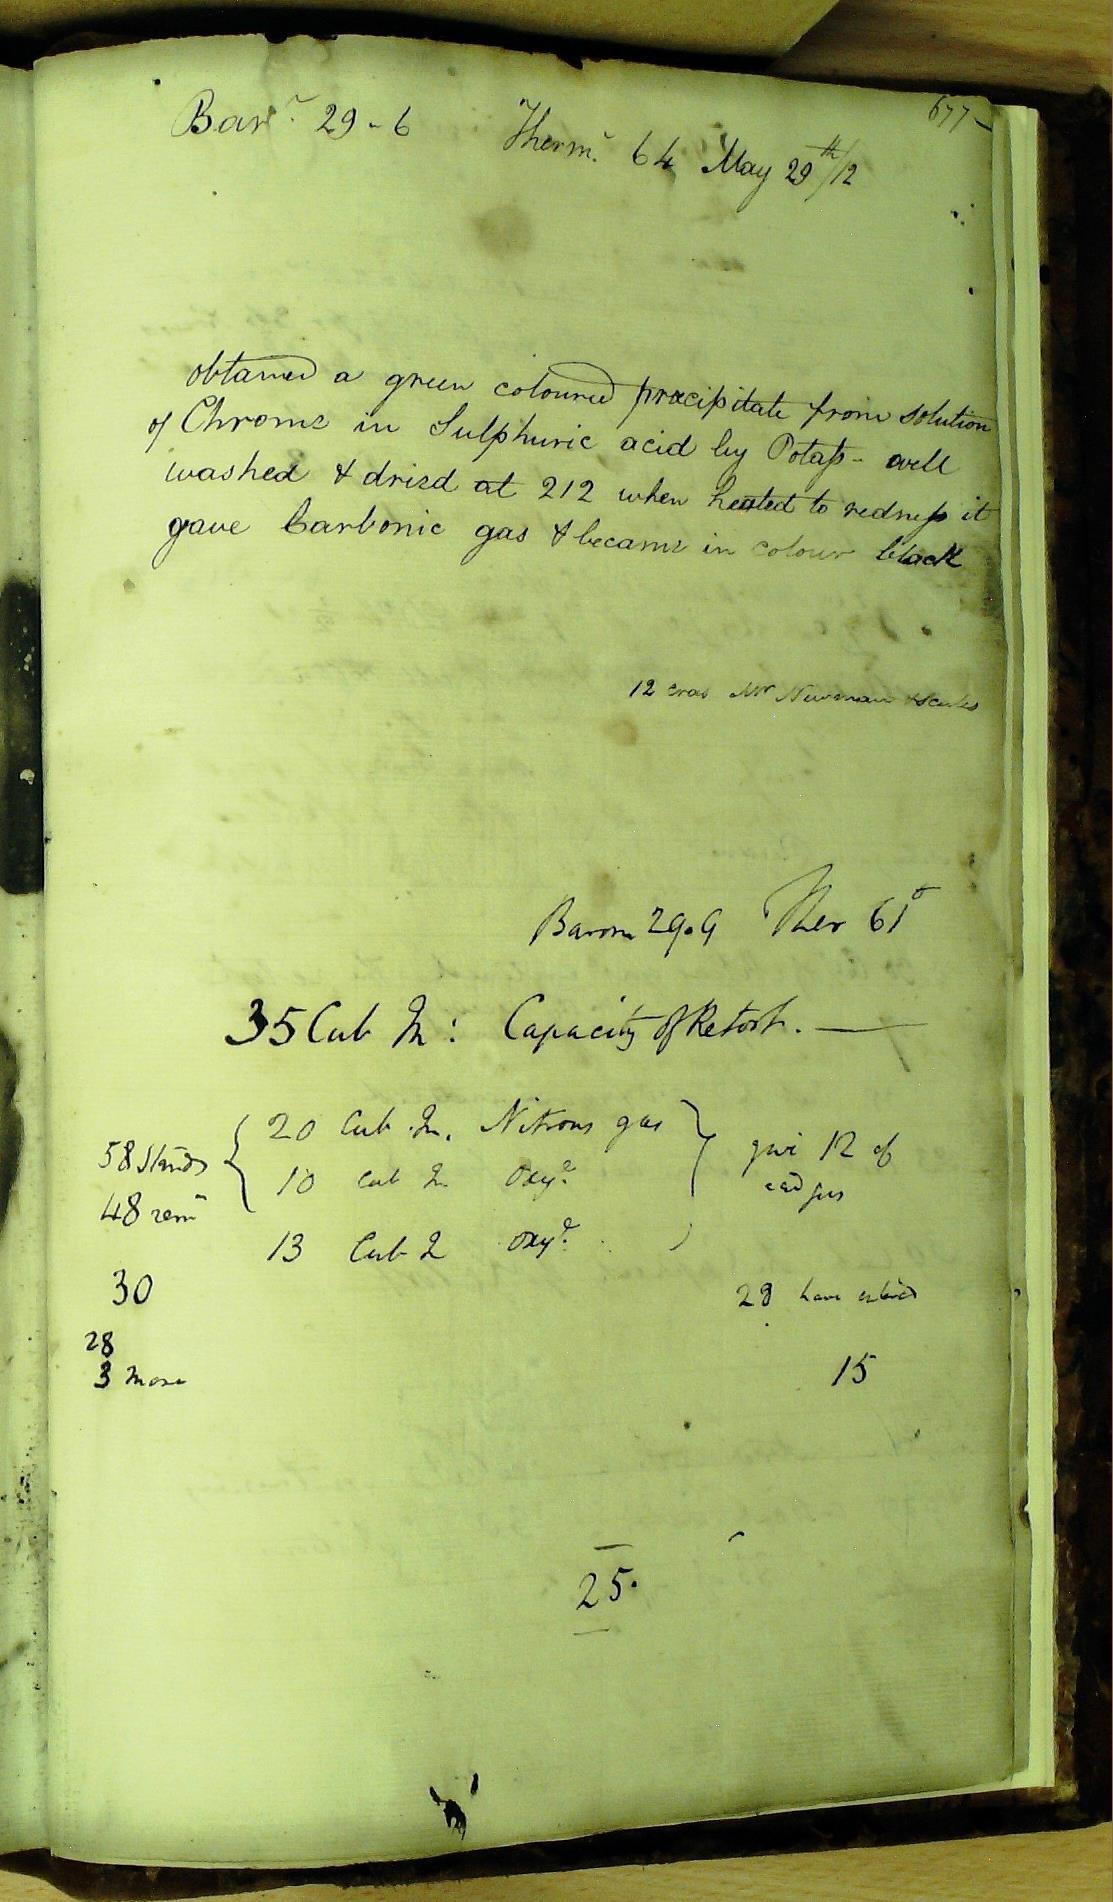 677
Bar.r 29-6 Therm.r 64 May 29th/12
obtained a green coloured precipitate from solution
of Chrome in Sulphuric acid by Potass- well
washed & dried at 212 when heated to redness it
gave Carbonic gas & became in colour black
12 Mr Newman
Barom 29.9 Ther 61°
35 Cub In: Capacity of Retort.
20 Cub. In. Nitrous gas
58
10 Cub In Oxye. give 12 of
48 remn gas
13 Cub I Oxye.
30
28 have
28
3 more
15
25.